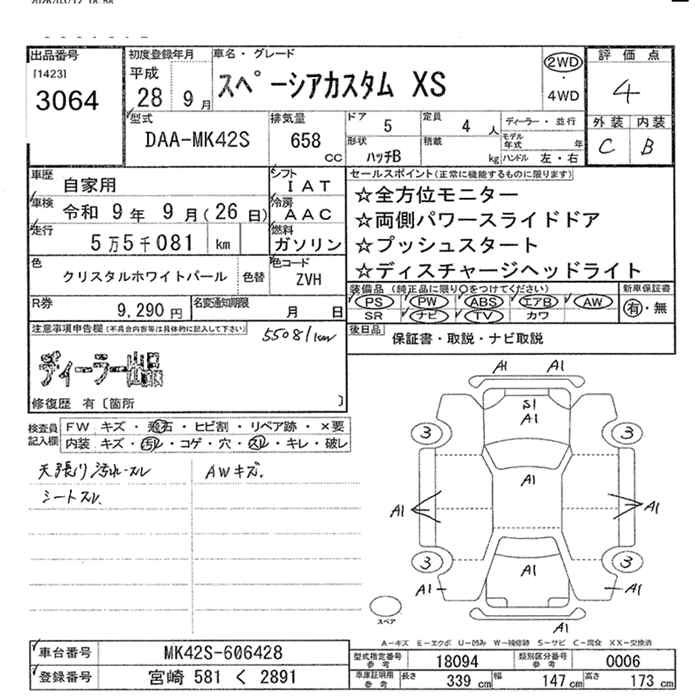 出品番号
[1423]
3064
初度登録年月
平成
28 9月
車名・グレード
スペーシアカスタム XS
2WD
・
4WD
評価点
4
外装 内装
C B
型式
DAA-MK42S
排気量
658
cc
ドア 5
定員 4 人
ディーラー・並行
形状 ハッチB
積載 kg
モデル年式 年
ハンドル 左・右
車歴 自家用
シフト IAT
車検 令和 9年 9月(26日)
冷房 AAC
走行 5万5千081 km
燃料 ガソリン
色 クリスタルホワイトパール 色替
色コード ZVH
R券 9,290円
名変通知期限 月 日
セールスポイント(正常に機能するものに限ります)
☆全方位モニター
☆両側パワースライドドア
☆プッシュスタート
☆ディスチャージヘッドライト
装備品(純正品に限り○をつけてください)
新車保証書
PS PW ABS エアB AW
SR ナビ TV カワ
有・無
後日品
保証書・取説・ナビ取説
注意事項申告欄(不具合内容等は具体的に記入して下さい)
55081km
ディーラー
修復歴 有〔箇所 〕
検査員記入欄
FW キズ・飛石・ヒビ割・リペア跡・×要
内装 キズ・汚レ・コゲ・穴・スレ・キレ・破レ
天張り汚れ・スレ
シートスレ
AWキズ。
A1 A1
S1
A1
3 3
A1
A1 A1
3 3
A1
A1 A1
A1
スペア
A-キズ E-エクボ U-凹み W-補修跡 S-サビ C-腐食 XX-交換済
車台番号 MK42S-606428
登録番号 宮崎 581 く 2891
型式指定番号 参考 18094
類別区分番号 参考 0006
車庫証明用 参考 長さ 339 cm 幅 147 cm 高さ 173 cm